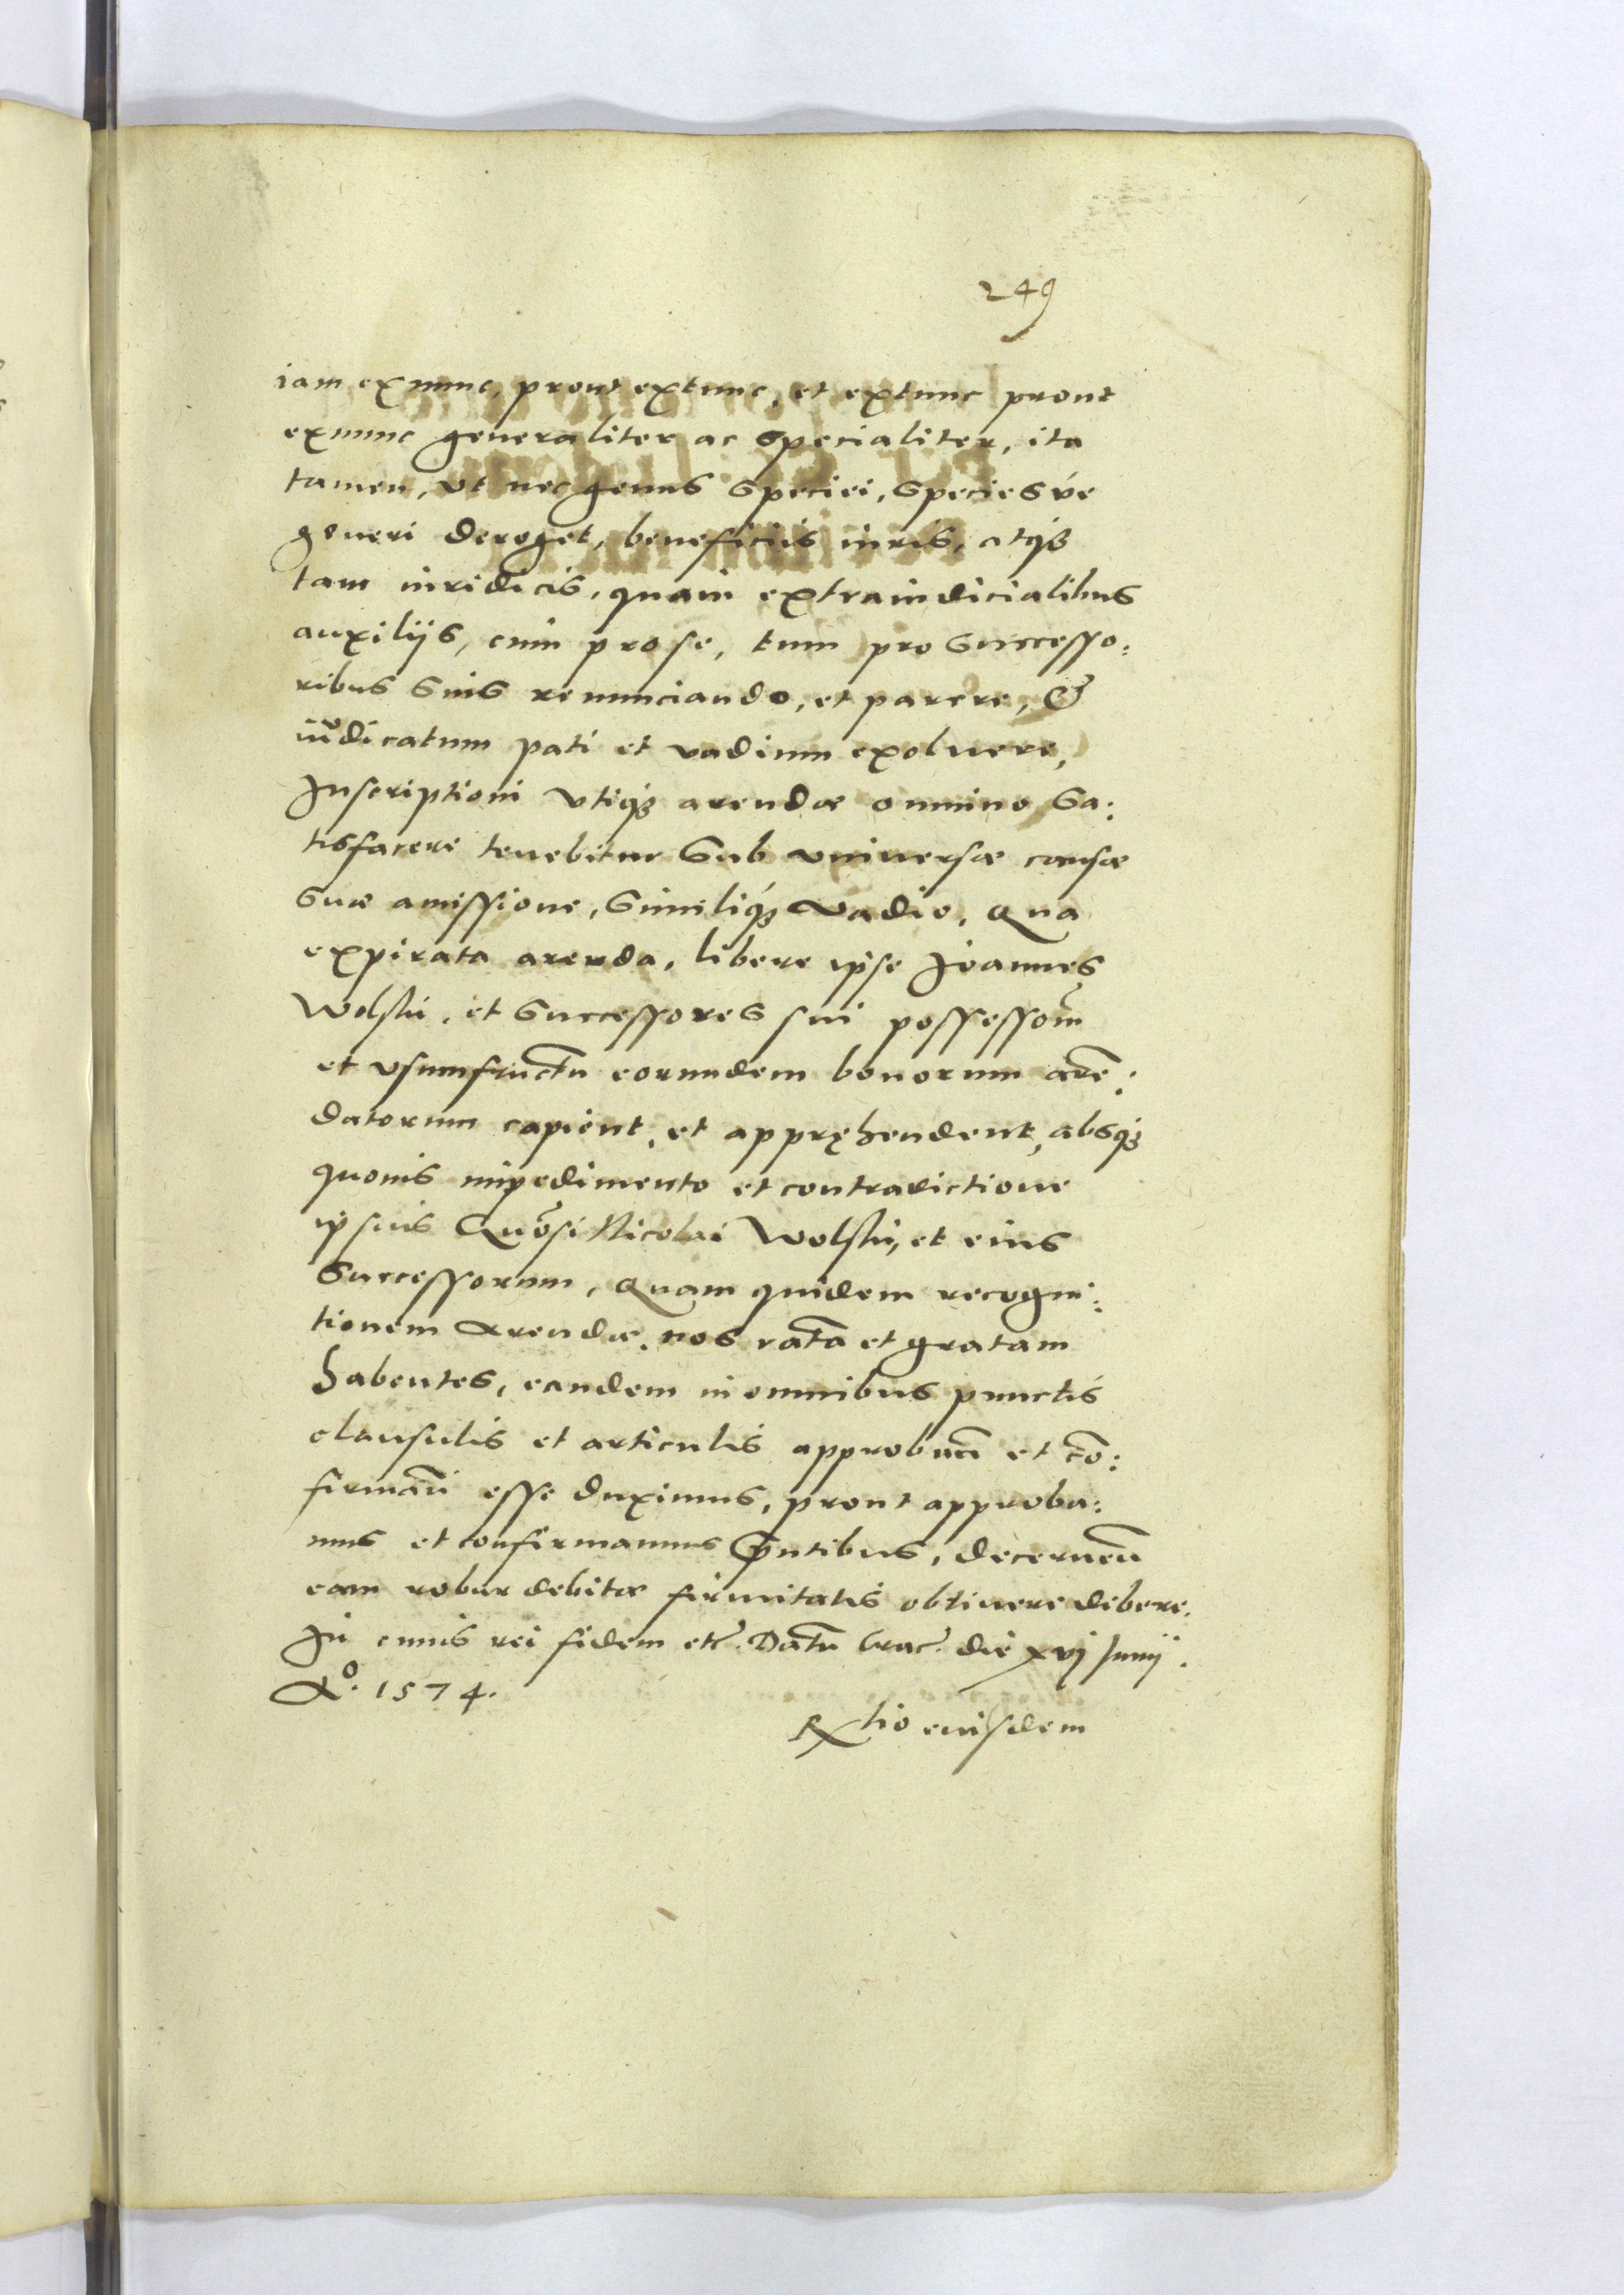 249
iam exnunc, prout extunc, et extunc prout
exnunc generaliter ac specialiter, ita
tamen, ut nec genus speciei, speciesve
generi deroget, beneficiis iuris, atqꝫ
tam iuridicis, quam extraiudicialibus
auxiliis, cum pro se, tum pro successo:
ribus suis renunciando, et parere, &
iudicatum pati et vadium exoluere,
Inscriptioni vtiqꝫ arendæ omnino sa:
tisfacere tenebitur sub vniuersæ causæ
suæ amissione, similiqꝫ vadio. Qua
expirata arenda, libere ipse Joannes
Wolski, et successores sui possessiom̃
et vsumfructũ eorundem bonorum arẽ:
datorum capient, et apprȩhendent, absqꝫ
quouis impedimento et contradictione
ipsius Gñosi Nicolai Wolski, et eius
successorum, Quam quidem recogni:
tionem Arendæ, nos ratã et gratam
habentes, eandem in omnibus punctis
clausulis et articulis approbañ et cõ:
firmañ esse duximus, prout approba:
mus et confirmamus p̃ntibus, decerneñ
eam robur debitæ firmitatis obtinere debere.
In cuius rei fidem etc̃. Datũ Crac̃. die xvj Junij.
Aº. 1574.
Rtio eiusdem